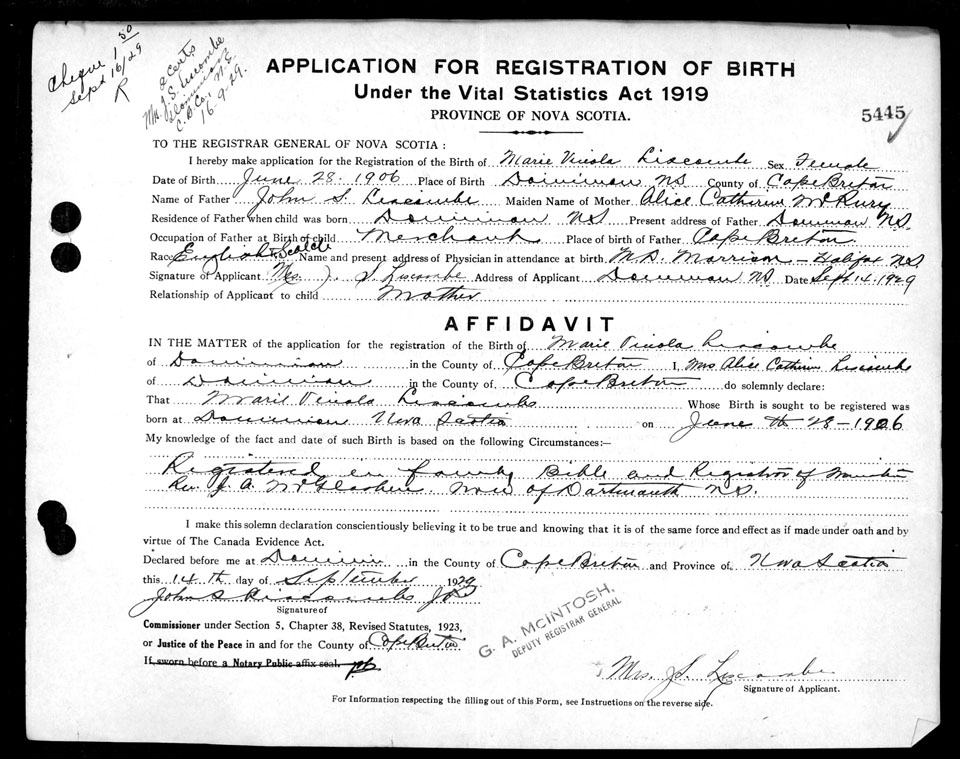 Cheque 1 50
Sept 16/29
R
2 Certs
Mrs J. S. Liscombe
Dominion
C. B Co., N. S.
16-9-29.
APPLICATION FOR REGISTRATION OF BIRTH
Under the Vital Statistics Act 1919
PROVINCE OF NOVA SCOTIA.
5445
TO THE REGISTRAR GENERAL OF NOVA SCOTIA :
I hereby make application for the Registration of the Birth of Marie Vinola Liscombe Sex Female
Date of Birth June 28. 1906 Place of Birth Dominion NS County of Cape Breton
Name of Father John S. Liscombe Maiden Name of Mother Alice Catherine
Residence of Father when child was born Dominion NS Present address of Father Dominion N.S.
Occupation of Father at Birth of child Merchant Place of birth of Father Cape Breton
Race English & Scotch Name and present address of Physician in attendance at birth M.D. Morrison - Halifax N.S.
Signature of Applicant Mrs. J. S. Liscombe Address of Applicant Dominion NS Date Sept 14. 1929
Relationship of Applicant to child Mother
AFFIDAVIT
IN THE MATTER of the application for the registration of the Birth of Marie Vinola Liscombe
of Dominion in the County of Cape Breton I, Mrs Alice Catherine Liscombe
of Dominion in the County of Cape Breton do solemnly declare:
That Marie Vinola Liscombe Whose Birth is sought to be registered was
born at Dominion Nova Scotia on June th 28-1906
My knowledge of the fact and date of such Birth is based on the following Circumstances:—
Registered in family Bible and Registror of Minister
Rev. J. A. Now of Dartmouth N.S.
I make this solemn declaration conscientiously believing it to be true and knowing that it is of the same force and effect as if made under oath and by
virtue of The Canada Evidence Act.
Declared before me at Dominion in the County of Cape Breton and Province of Nova Scotia
this 14 th day of September 1929
John S Liscombe J.P.
Signature of
Commissioner under Section 5, Chapter 38, Revised Statutes, 1923,
or Justice of the Peace in and for the County of Cape Breton
If sworn before a Notary Public affix seal.
G. A. McINTOSH,
DEPUTY REGISTRAR GENERAL
Mrs. J S. Liscombe
Signature of Applicant.
For Information respecting the filling out of this Form, see Instructions on the reverse side.